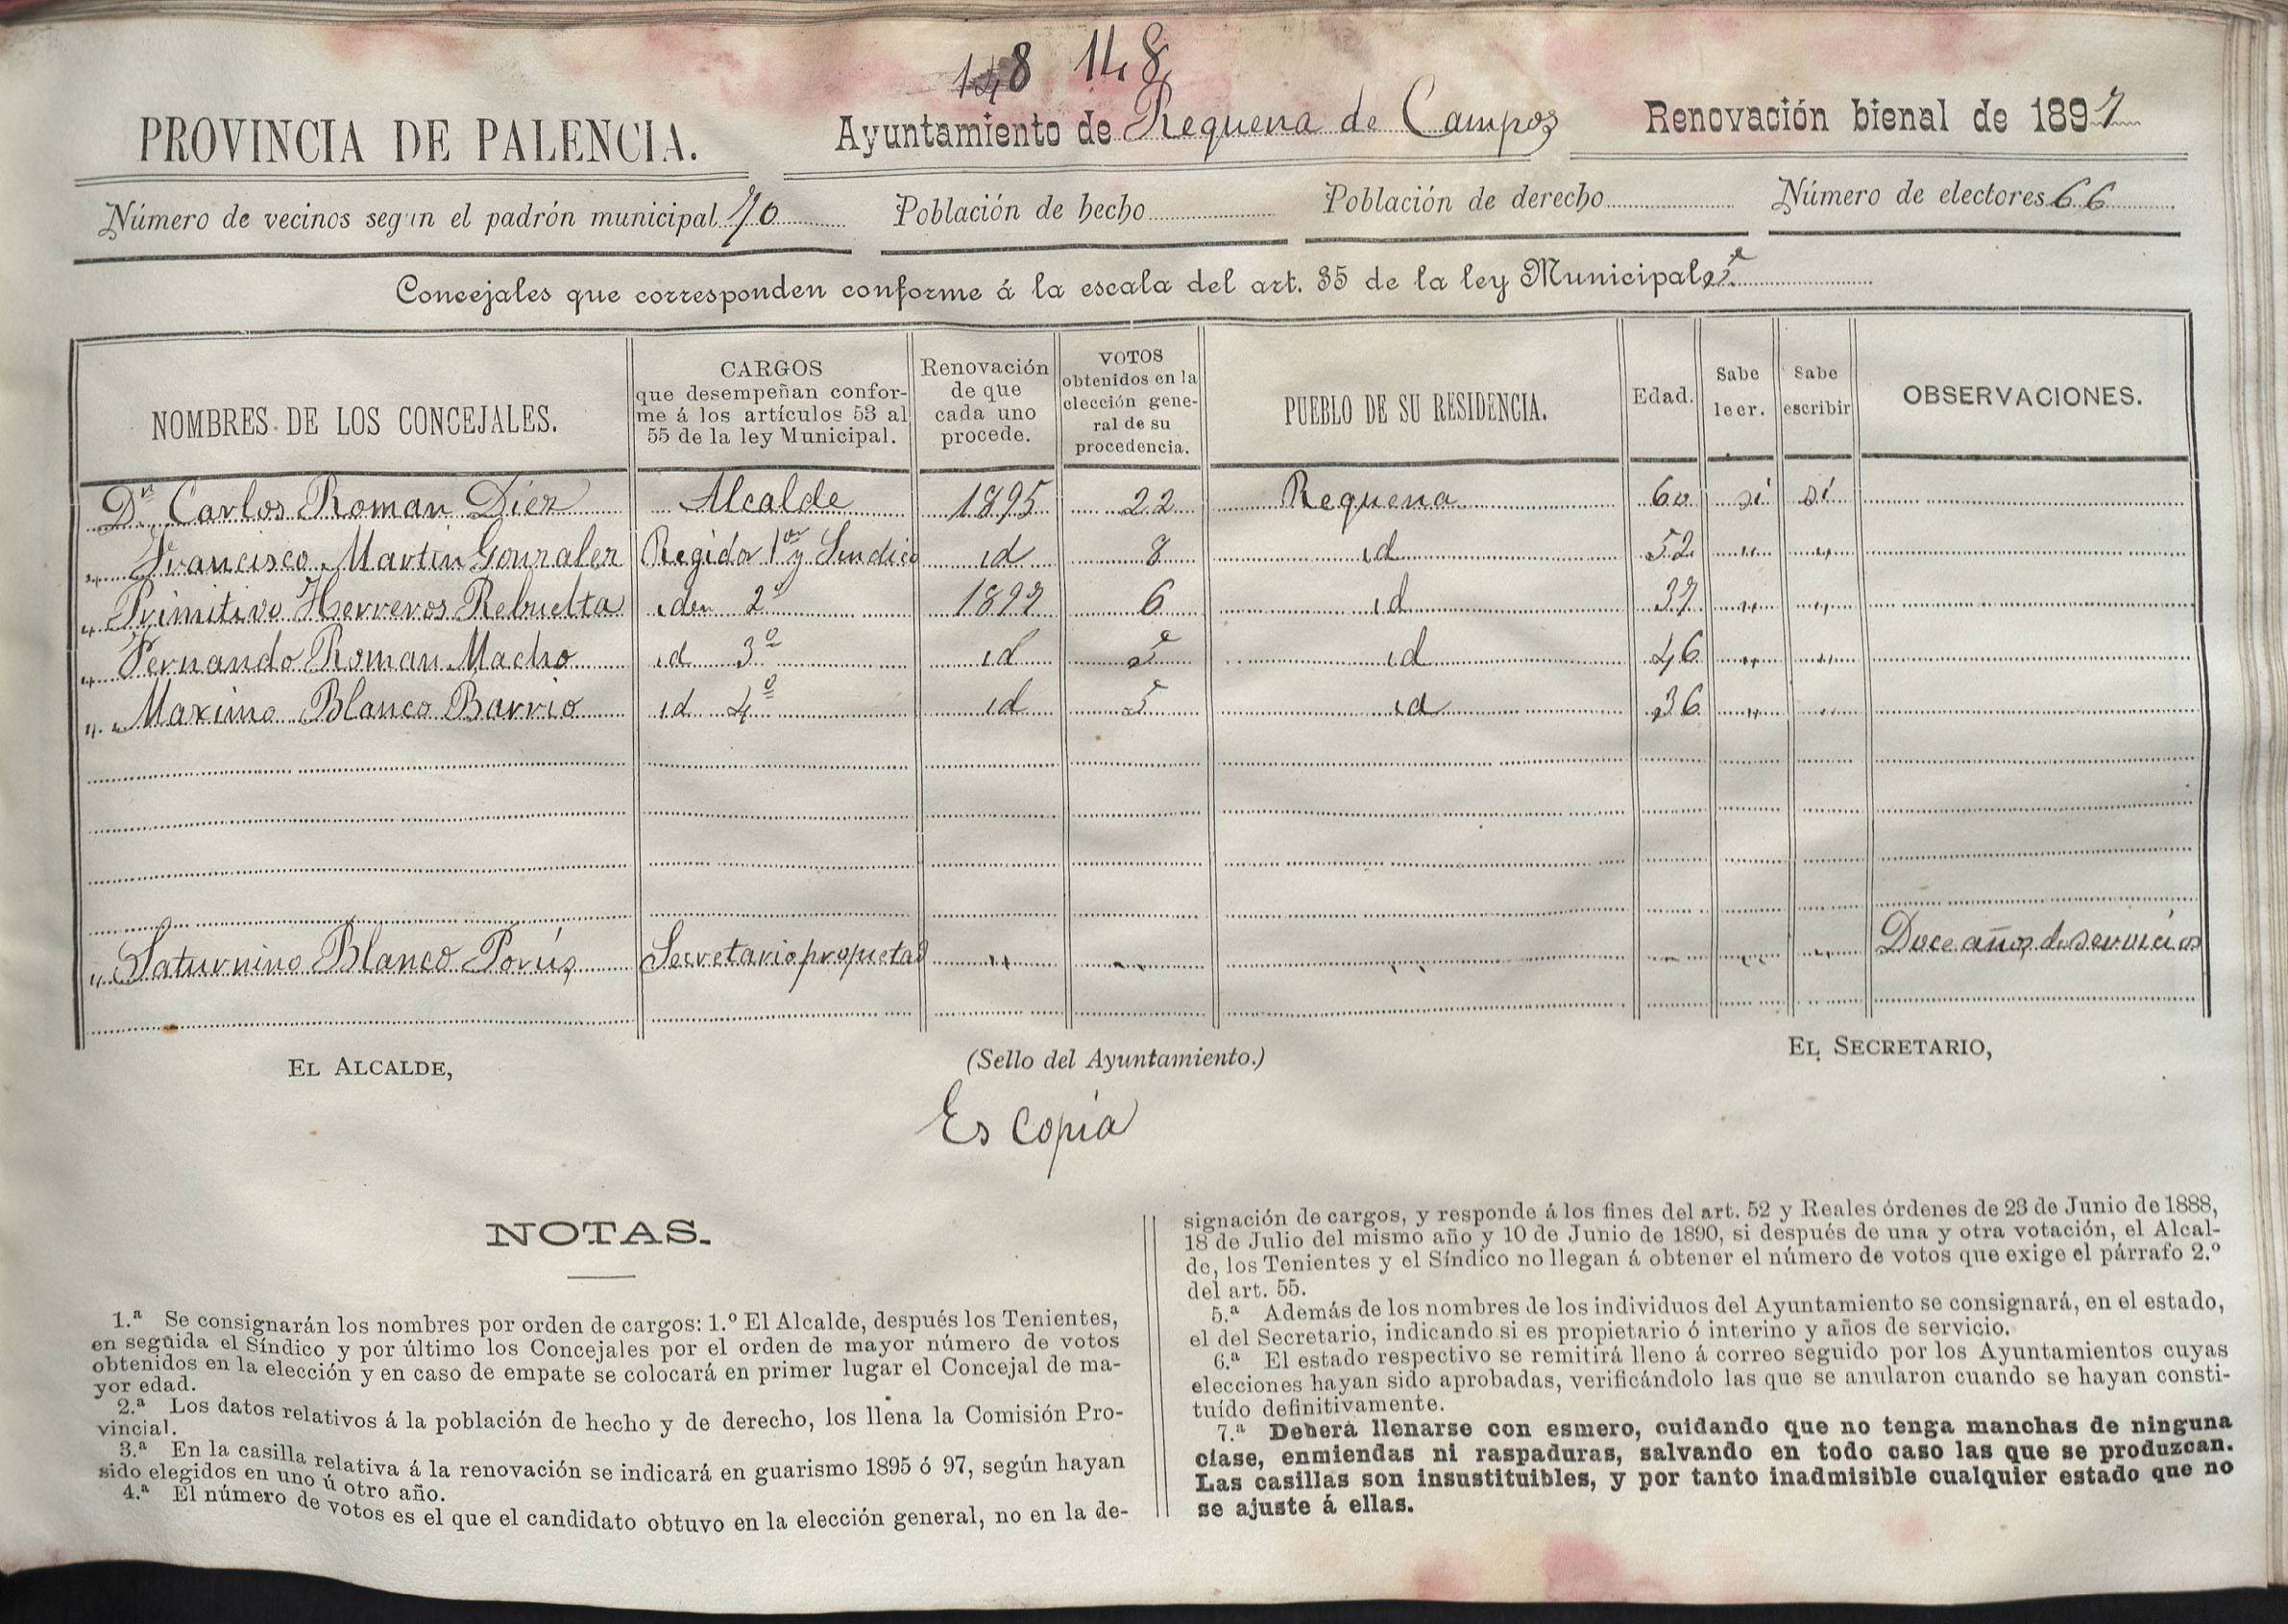 148 148
PROVINCIA DE PALENCIA. Ayuntamiento de Requena de Campos Renovación bienal de 1897
Número de vecinos según el padrón municipal 70 Población de hecho Población de derecho Número de electores 66
Concejales que corresponden conforme á la escala del art. 35 de la ley Municipal 5
NOMBRES DE LOS CONCEJALES. CARGOS que desempeñan confor- me á los artículos 53 al 55 de la ley Municipal. Renovación de que cada uno procede. VOTOS obtenidos en la elección gene- ral de su procedencia. PUEBLO DE SU RESIDENCIA. Edad. Sabe leer. Sabe escribir OBSERVACIONES.
Dn Carlos Roman Diez Alcalde 1895 22 Requena 60 sí sí
" Francisco Martin Gonzalez Regidor 1or y Sindico id 8 id 52 " "
" Primitivo Herreros Rebuelta iden 2º 1897 6 id 37 " "
" Fernando Roman Macho id 3º id 5 id 46 " "
" Maximo Blanco Barrio id 4º id 5 id 36 " "
" Saturnino Blanco Porús Secretario propietao " " " " " " Doce años de servicios
EL ALCALDE, (Sello del Ayuntamiento.) EL SECRETARIO,
Es copia
NOTAS.
1.ª Se consignarán los nombres por orden de cargos: 1.º El Alcalde, después los Tenientes,
en seguida el Síndico y por último los Concejales por el orden de mayor número de votos
obtenidos en la elección y en caso de empate se colocará en primer lugar el Concejal de ma-
yor edad.
2.ª Los datos relativos á la población de hecho y de derecho, los llena la Comisión Pro-
vincial.
3.ª En la casilla relativa á la renovación se indicará en guarismo 1895 ó 97, según hayan
sido elegidos en uno ú otro año.
4.ª El número de votos es el que el candidato obtuvo en la elección general, no en la de-
signación de cargos, y responde á los fines del art. 52 y Reales órdenes de 23 de Junio de 1888,
18 de Julio del mismo año y 10 de Junio de 1890, si después de una y otra votación, el Alcal-
de, los Tenientes y el Síndico no llegan á obtener el número de votos que exige el párrafo 2.º
del art. 55.
5.ª Además de los nombres de los individuos del Ayuntamiento se consignará, en el estado,
el del Secretario, indicando si es propietario ó interino y años de servicio.
6.ª El estado respectivo se remitirá lleno á correo seguido por los Ayuntamientos cuyas
elecciones hayan sido aprobadas, verificándolo las que se anularon cuando se hayan consti-
tuído definitivamente.
7.ª Deberá llenarse con esmero, cuidando que no tenga manchas de ninguna
clase, enmiendas ni raspaduras, salvando en todo caso las que se produzcan.
Las casillas son insustituibles, y por tanto inadmisible cualquier estado que no
se ajuste á ellas.